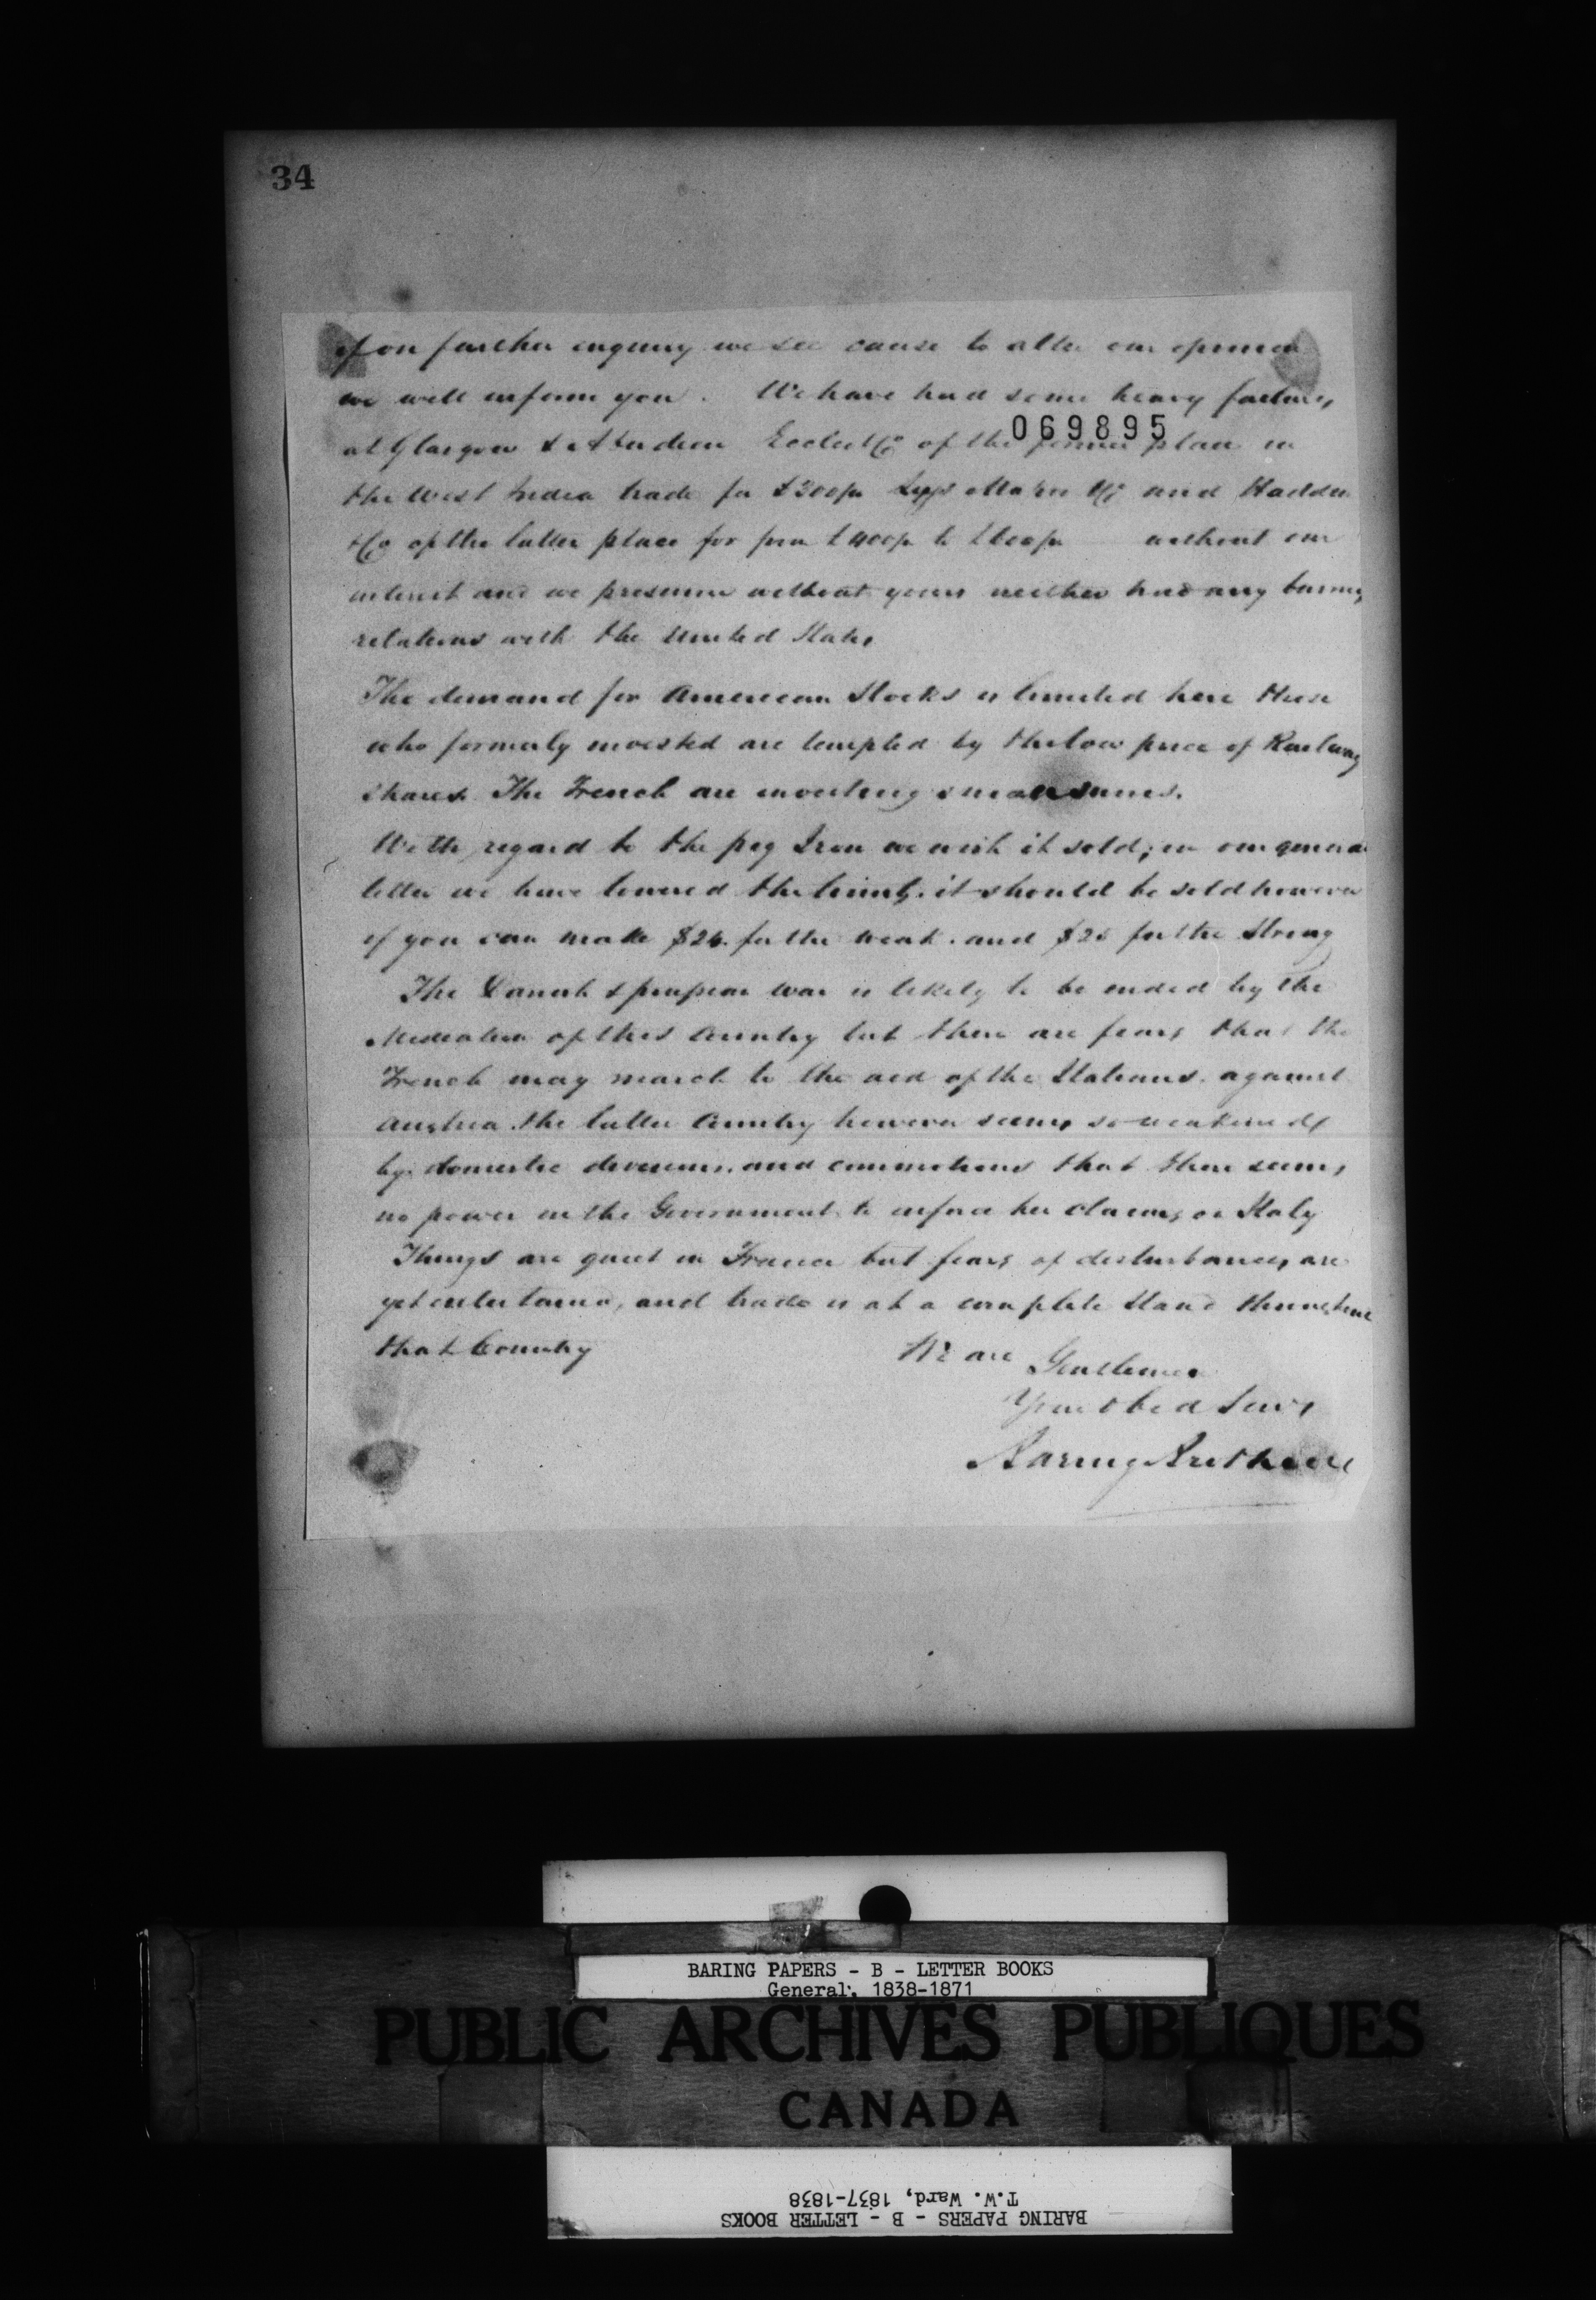 34
if on further enquiry we see cause to alter our opinion
we will inform you. We have had some heavy failures
069895
at Glasgow & Aberdeen Eccles & Co of the former place in
the West India trade for and Hadden
& Co of the latter place for from without our
interest and we presume without yours neither had any business
relations with the United States
The demand for American Stocks is limited here those
who formerly invested are tempted by the low price of Railway
Shares. The French are investing small sums.
With regard to the pig Iron we wish it sold; in our general
letter we have lowered the limits. it should be sold however
if you can make for the weak. and for the Strong
The Danish & prussian war is likely to be ended by the
Mediation of this Country but there are fears that the
French may march to the aid of the Italians. against
Austria. the latter Country however seems so weakened
by domestic divisions. and commotions that there seems
no power in the Government to enforce her claims on Italy
Things are quiet in France but fears of disturbances are
yet entertained, and trade is at a complete Stand
that Country
We are Gentlemen
Your obed Servs
Baring Brothers
BARING PAPERS - B - LETTER BOOKS
General, 1838-1871
PUBLIC ARCHIVES PUBLIQUES
CANADA
T.W. Ward, 1837-1838
BARING PAPERS - B - LETTER BOOKS